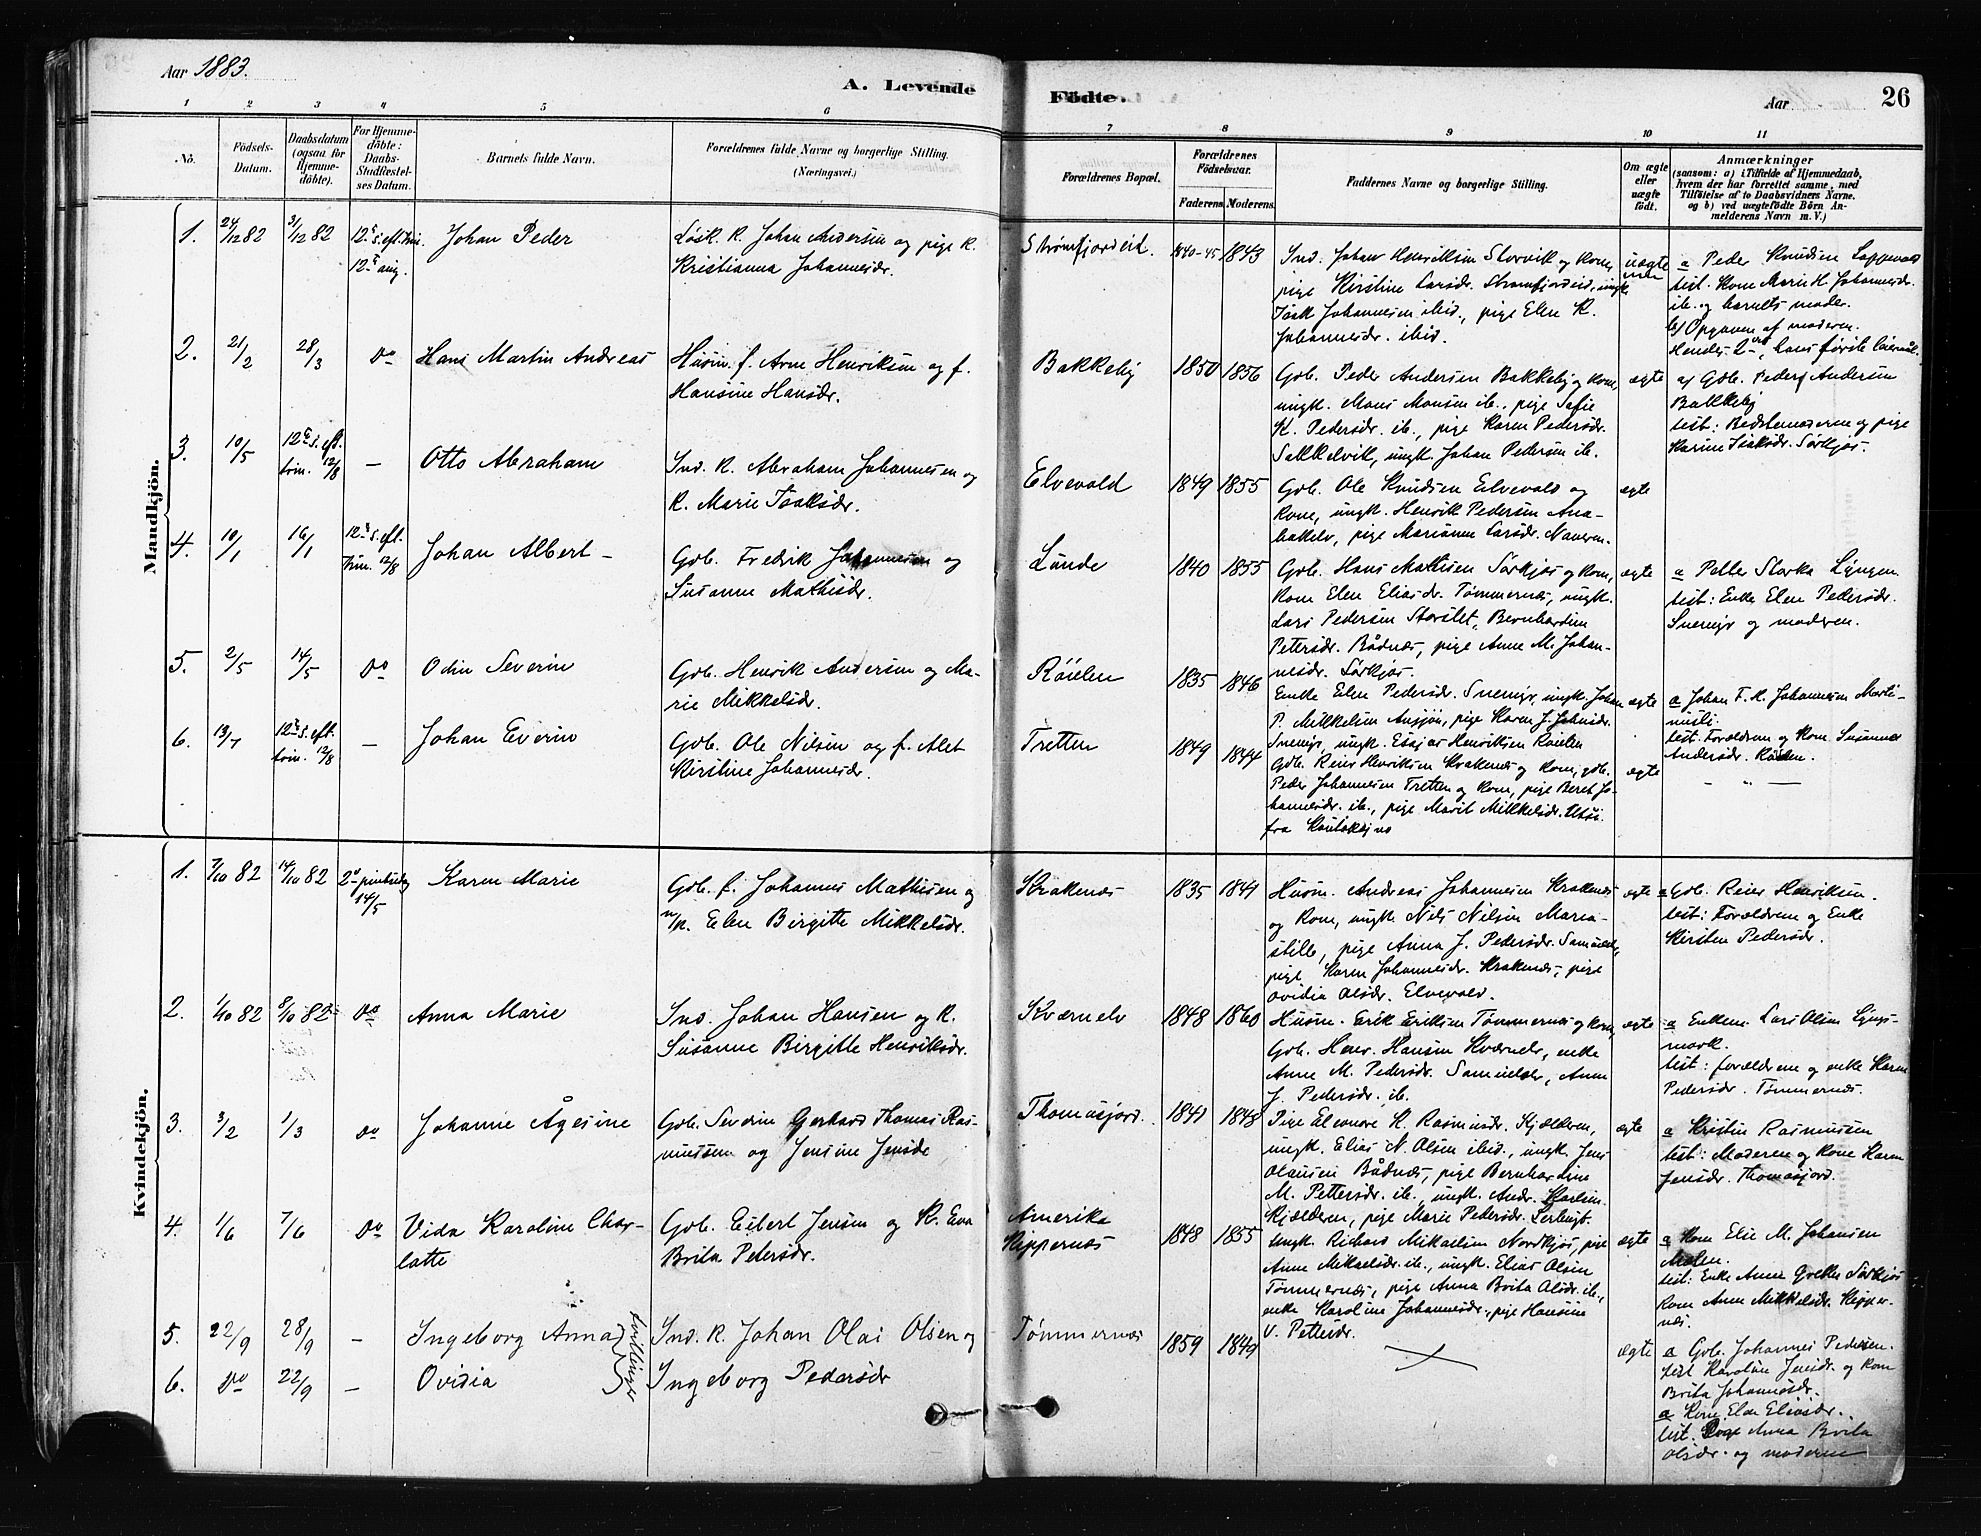 Aar 1883.
A. Levende
Födte.
Aar
26
1 2 3 4 5 6
7 8 9 10 11
No.
Födsels-
Datum.
Daabsdatum
(ogsaa för
Hjemme-
döbte).
For Hjemme-
döbte:
Daabs-
Stadfæstel-
ses Datum.
Barnets fulde Navn.
Forældrenes fulde Navne og borgerlige Stilling.
(Næringsvei.)
Forældrenes Bopæl.
Forældrenes
Födselsaar.
Faderens Moderens
Faddernes Navne og borgerlige Stilling.
Om ægte
eller
uægte
födt.
Anmærkninger
(saasom: a) i Tilfælde af Hjemmedaab,
hvem der har forrettet samme, med
Tilföielse af to Daabsvidners Navne.
og b) ved uægtefödte Börn An-
melderens Navn m. V.)
Mandkjön.
1.
24/12 82
3/12 82
12te s. eft. trin.
12te aug.
Johan Peder
Løsk. K. Johan Andersen og pige K.
Kristianna Johannesdr.
Strømfjordeid.
1840-45
1843
Ind. Johan Henriksen Storvik og kone,
pige Kirstine Larsdr. Strømfjordeid, ungk.
Isak Johannesen ibid., pige Elen K.
Johannesdr. ibid.
uægte
a Peder Knudsen
test. Kone Marie K. Johannesdr.
ib. og barnets moder.
b) Opgaven af moderen.
Hendes 2det, hans første leiermål.
2.
21/2
28/3
Do
Hans Martin Andreas
Husm. f. Arne Henriksen og f.
Hansine Hansdr.
Bakkeby
1850
1856
Gdb. Peder Andersen Bakkeby og kone,
ungk. Mons Monsen ib., pige Sofie
K. Pedersdr. ib., pige Karen Pedersdr.
Sakkelvik, ungk. Johan Pedersen ib.
ægte
a) Gdb. Peder Andersen
Bakkeby
test: Bedstemoderen og pige
Karine Isaksdr. Sørkjos.
3.
10/5
12te s. eft.
trin. 12/8
—
Otto Abraham
Ind. K. Abraham Johannesen og
K. Marie Isaksdr.
Elvevold
1849
1855
Gdb. Ole Knudsen Elvevold og
kone, ungk. Henrik Pedersen Ana-
bakelv, pige Marianne Larsdr. Naveren.
ægte
4.
10/1
16/1
12te s. eft.
trin. 12/8
Johan Albert —
Gdb. Fredrik Johannesen og
Susanne Mathisdr.
Lunde
1840
1855
Gdb. Hans Mathisen Sørkjos og kone,
kone Elen Eliasdr. Tømmernæs, ungk.
Lars Pedersen Storslet, Bernhardine
Petersdr. Bådnæs, pige Anne M. Johan-
nesdr. Sørkjos.
ægte
a Petter Storka Lyngen.
test: Enke Elen Pedersdr.
Snemyr og moderen.
5.
2/5
14/5
Do
Odin Severin
Gdb. Henrik Andersen og Ma-
rie Mikkelsdr.
Røielen
1835
1846
Enke Elen Pedersdr. Snemyr, ungk. Johan
P. Mikkelsen Ansjøn, pige Karen J. Johnsdr.
Snemyr, ungk. Esajas Henriksen Røielen
ægte
a Johan F. K. Johannesen
test. Forældrene og kone Susanna
Andersdr. Røielen.
6.
13/7
12te s. eft.
trin. 12/8
—
Johan Everin
Gdb. Ole Nilsen og f. Alet
Kirstine Johannesdr.
Tretten
1849
1844
Gdb. Reier Henriksen Krakenæs og kone, gdb.
Peder Johannesen Tretten og kone, pige Beret Jo-
hannesdr. ib., pige Marit Mikkelsdr. Utsi.
fra Koutokejno
ægte
— „ —
Kvindekjön.
1.
7/10 82
14/10 82
2d pintsedag
14/5
Karen Marie
Gdb. f. Johannes Mathisen og
n/k. Elen Birgitte Mikkelsdr.
Krakenæs
1835
1841
Husm. Andreas Johannesen Krakenæs
og kone, ungk. Nils Nilsen Maria-
stille, pige Anna J. Pedersdr. Samuelelv,
pige Karen Johannesdr. Krakenæs, pige
Ovidia Olsdr. Elvevold.
ægte
a Gdb. Reier Henriksen.
test: Forældrene og Enke
Kirsten Pedersdr.
2.
1/10 82
8/10 82
Do
Anna Marie
Ind. Johan Hansen og K.
Susanne Birgitte Henriksdr.
Kvernelv
1848
1860
Husm. Erik Eriksen Tømmernæs og kone,
Gdb. Henr. Hansen Kvernelv, enke
Anne M. Pedersdr. Samuelelv, Anne
J. Pedersdr. ib.
ægte
a Enkem. Lars Olsen Lyngs-
mark.
test: forældrene og enke Karen
Pedersdr. Tømmernæs.
3.
3/2
1/3
Do
Johanne Ågesine
Gdb. Severin Gerhard Thomas Ras-
mussen og Jensine Jensdr
Thomasjord.
1841
1848
Pige Eleonore K. Rasmusdr. Kjælderen,
ungk. Elias N. Olsen ibid., ungk. Jens
Olausen Bådnæs, pige Bernhardine
M. Pettersdr. ib., ungk. Andr. Karlsen
Kjælderen, pige Marie Pedersdr.
ægte
a Kristin Rasmussen
test: Moderen og Kone Karen
Jensdr. Thomasjord.
4.
1/6
7/6
Do
Vida Karoline Char-
lotte
Gdb. Eibert Jensen og K. Eva
Brita Petersdr.
Amerika
Kippernæs
1848
1855
Ungk. Richard Mikaelsen Nordkjos, pige
Anne Mikaelsdr. ib., ungk. Elias Olsen
Tømmernæs, pige Anna Brita Olsdr. ib.,
enke Karoline Johannesdr., pige Hansine
V. Pettersdr.
ægte
a Kone Elie M. Johansen
test: Enke Anne Grethe Sørkjos
Kone Anne Mikkelsdr. Kipper-
næs.
5.
22/9
28/9
—
Ingeborg Anna
tvillinger
Ind. K. Johan Olai Olsen og
Tømmernæs
1859
1849
ægte
a Gdb. Johannes Pedersen.
test Karoline Jensdr. og kone
Brita Johannesdr.
6.
Do
22/9
—
Ovidia
Ingeborg Pedersdr
a Kone Elen Eliasdr.
test. Pige Anna Brita
Olsdr. og moderen